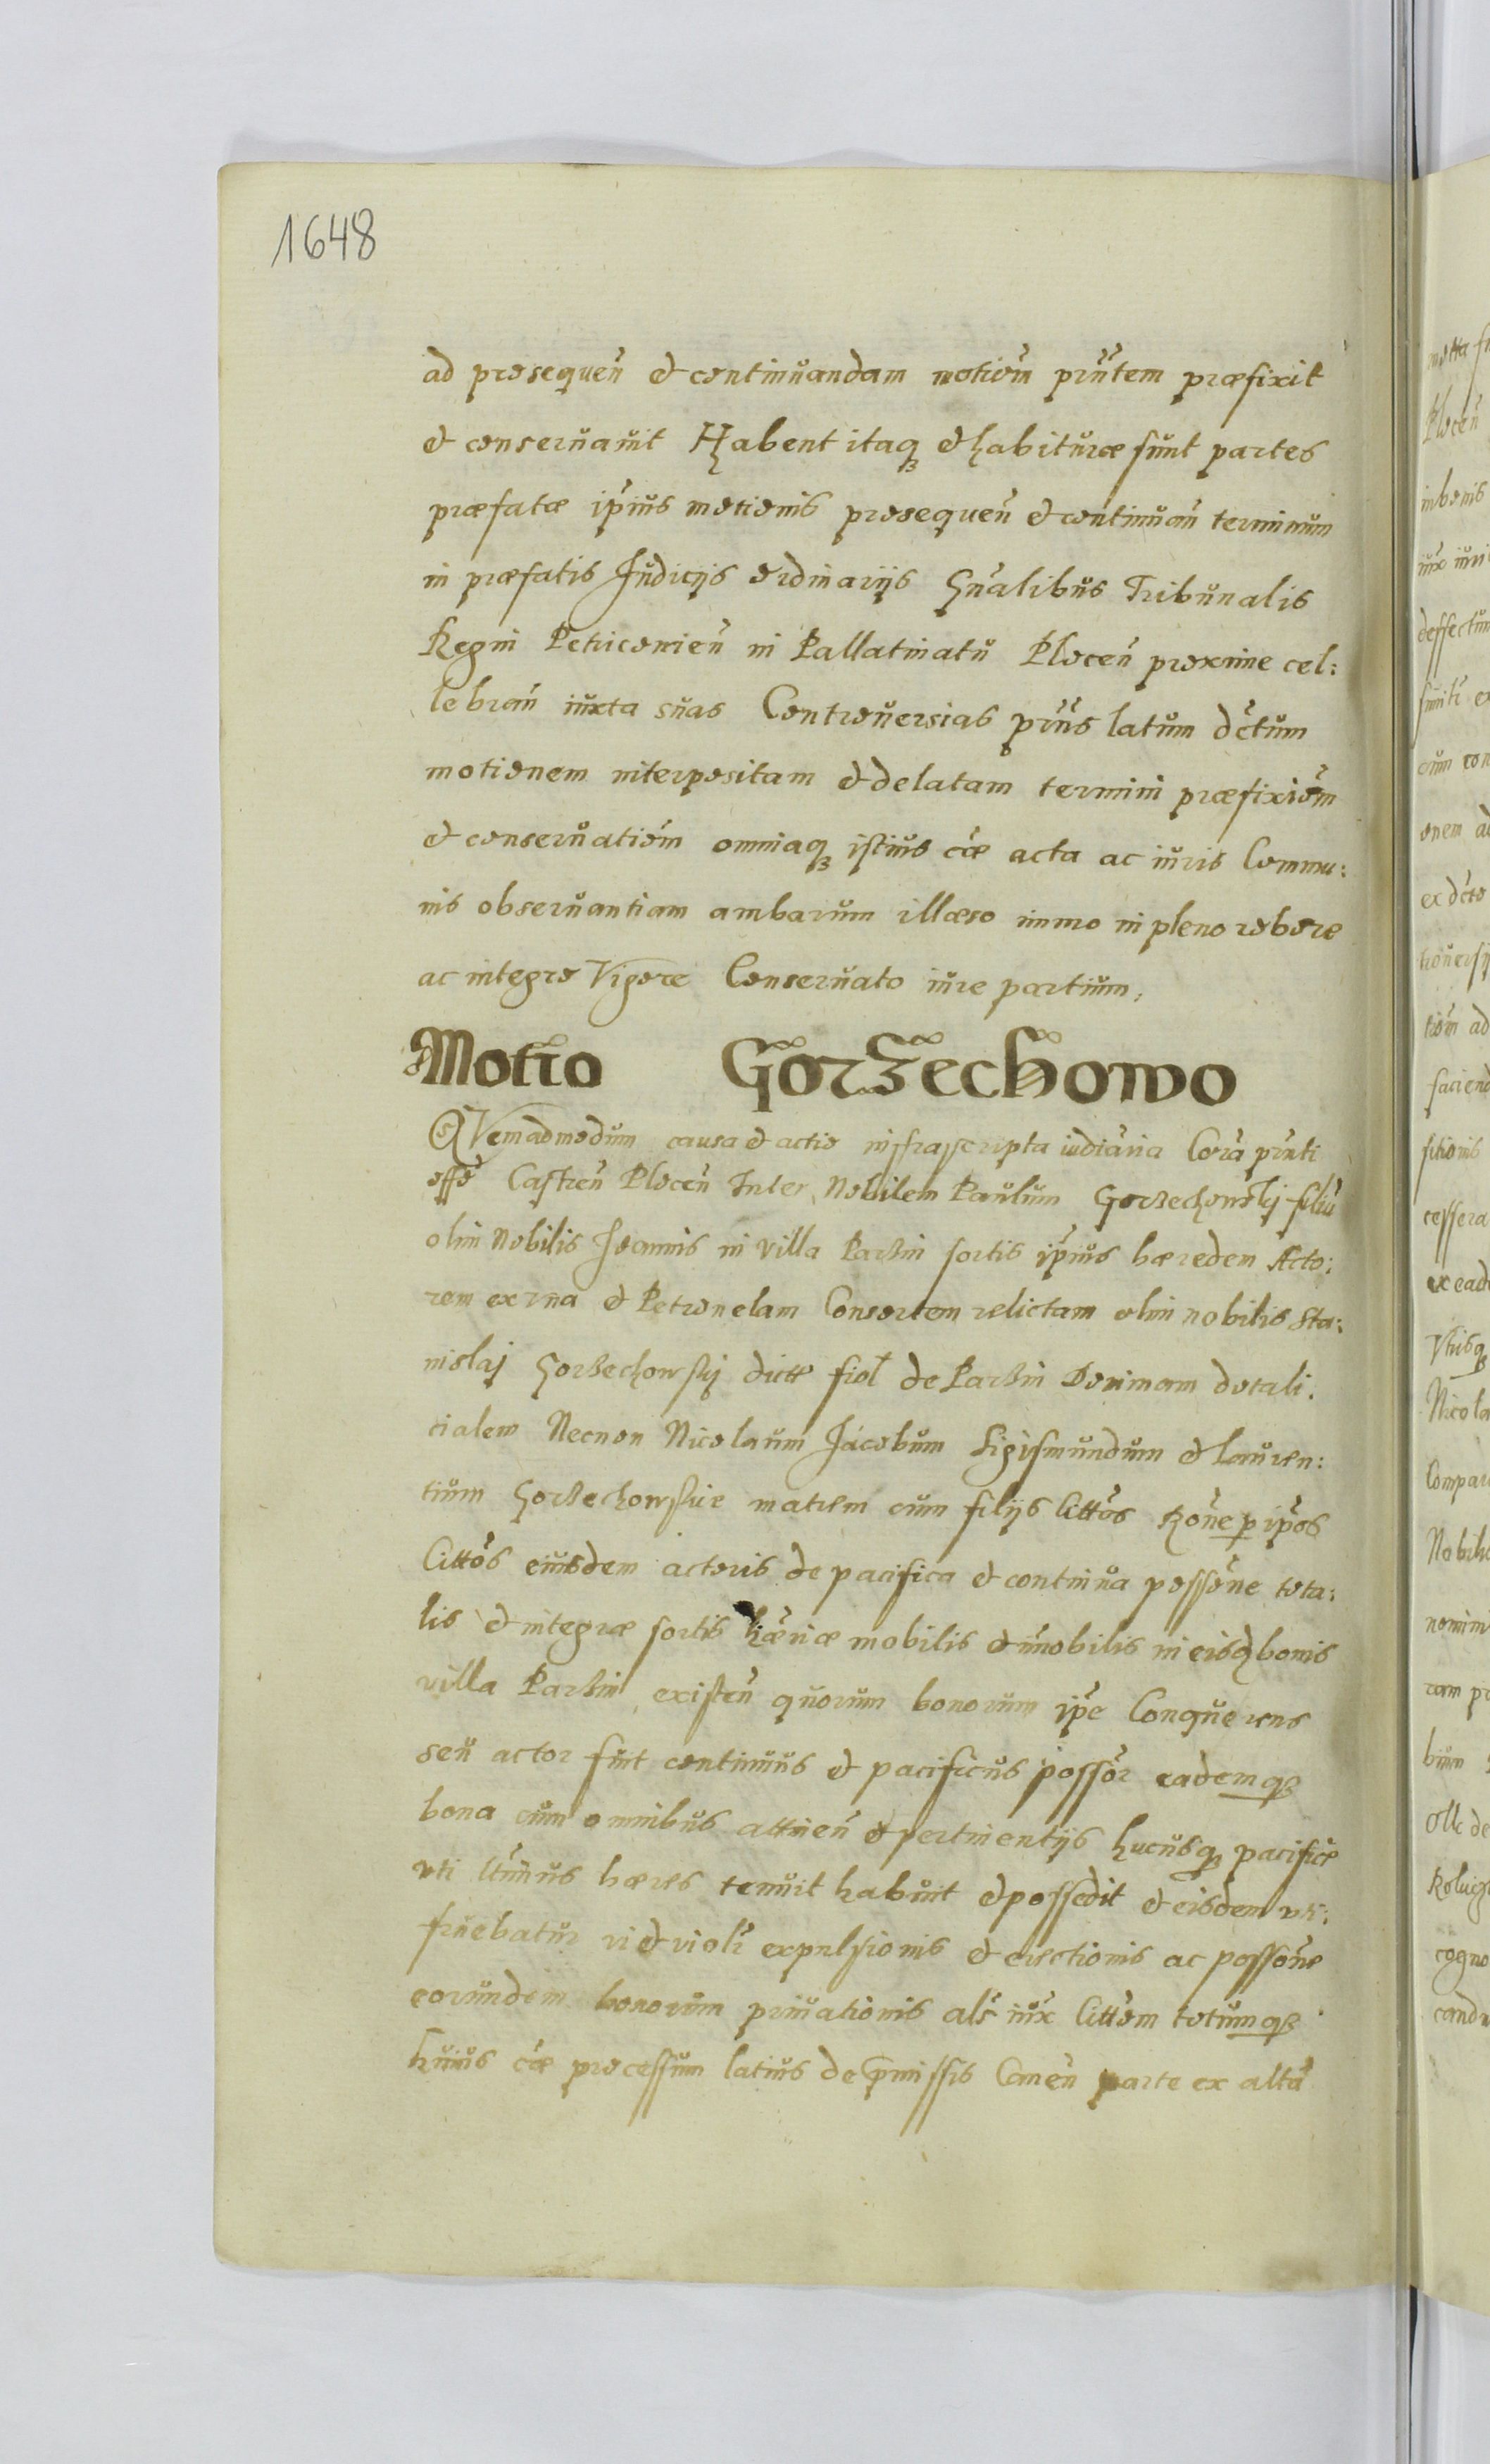 1648
ad prosequeñ et continuandam motiom̃ prñtem præfixit
et conseruauit Habent itaq₃ et habituræ sunt partes
præfatæ ip̃ius motionis prosequeñ et continuañ terminum
in præfatis Judicijs ordinarijs Gnãlibus Tribunalis
Regni Petricouieñ in Pallatinatu Ploceñ proxime cel:
lebrañ iuxta suas Controuersias prñs latum dc̃tum
motionem interpositam et delatam termini præfixiom̃
et conseruatiom̃ omniaq₃ istius cæ̃ acta ac iuris Commu:
nis obseruantiam ambarum illæso immo in pleno robore
ac integro Vigore Conseruato iure partium.
Motio Gorzechowo
QVemadmodum causa et actio infrascripta iudiãria Corã prñti
offõ Castreñ Ploceñ Inter Nobilem Paulum Gorzechowskj filiũ
olim Nobilis Joannis in villa Parzin sortis ip̃ius hæredem Acto:
rem ex vna et Petronelam Consortem relictam olim nobilis Sta:
nislaj Gorzechowskj dictt fiol de Parzin Dominam dotali:
tialem Necnon Nicolaum Jacobum Sigismundum et Lauren:
tium Gorzechowskie matrem cum filijs Cittõs Rõne p ip̃os
Cittõs eiusdem actoris de pacifica et continua possõne tota:
lis et integræ sortis hæ̃riæ mobilis et im̃obilis in eisq₃ bonis
villa Parzin existeñ quorum bonorum ip̃e Conquerens
seu actor fuit continuus et pacificus possõr eademq₃
bona cum omnibus attineñ et pertinentijs hucusq₃ pacifice
vti ltĩmus hæres tenuit habuit et possedit et eisdem vti:
fruebatur vi et violĩ expulsionis et eiectionis ac possõne
eorundem bonorum priuationis als̃ iux̃ Cittõm totumq₃
huius cæ̃ processum latius de p̃missis Coneñ parte ex altã